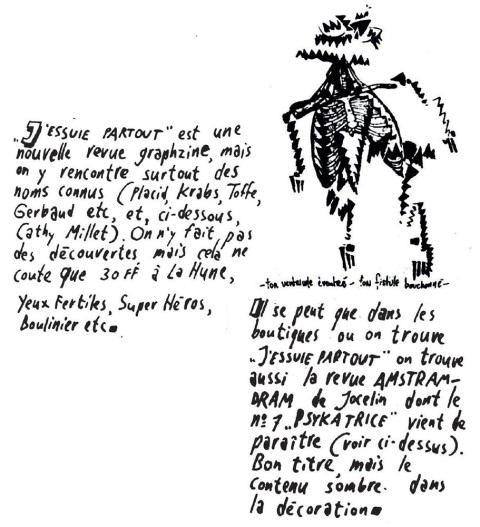 „J'ESSUIE PARTOUT" est une
nouvelle revue graphzine, mais
on y rencontre surtout des
noms connus (Placid, Krabs, Toffe,
Gerbaud etc, et, ci-dessous,
Cathy Millet). On n'y fait pas
des découvertes mais cela ne
coute que 30 FF à La Hune,
Yeux Fertiles, Super Héros,
Boulinier etc.
- ton ventricule - ton fistule bouchonné -
Il se peut que dans les
boutiques ou on trouve
„J'ESSUIE PARTOUT" on trouve
aussi la revue AMSTRAM-
DRAM de Jocelin dont le
n° 1 „PSYKATRICE" vient de
paraître (voir ci-dessus).
Bon titre, mais le
contenu sombre dans
la décoration.